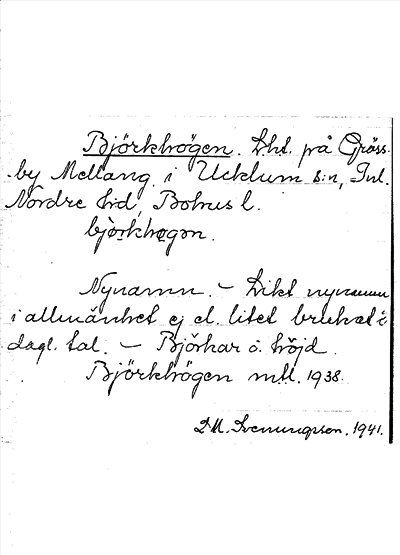 Björkhögen. Lht. på Gräss-
by Mellang. i Ucklum s:n, Inl.
Nordre hd, Bohus l.
bjö̀rkhøgən.
Nynamn. – Dikt nynamn
i allmänhet ej el. litet brukat i
dagl. tal. – Björkar o. höjd.
Björkhögen mtl. 1938.
D.M. Svenungsson. 1941.